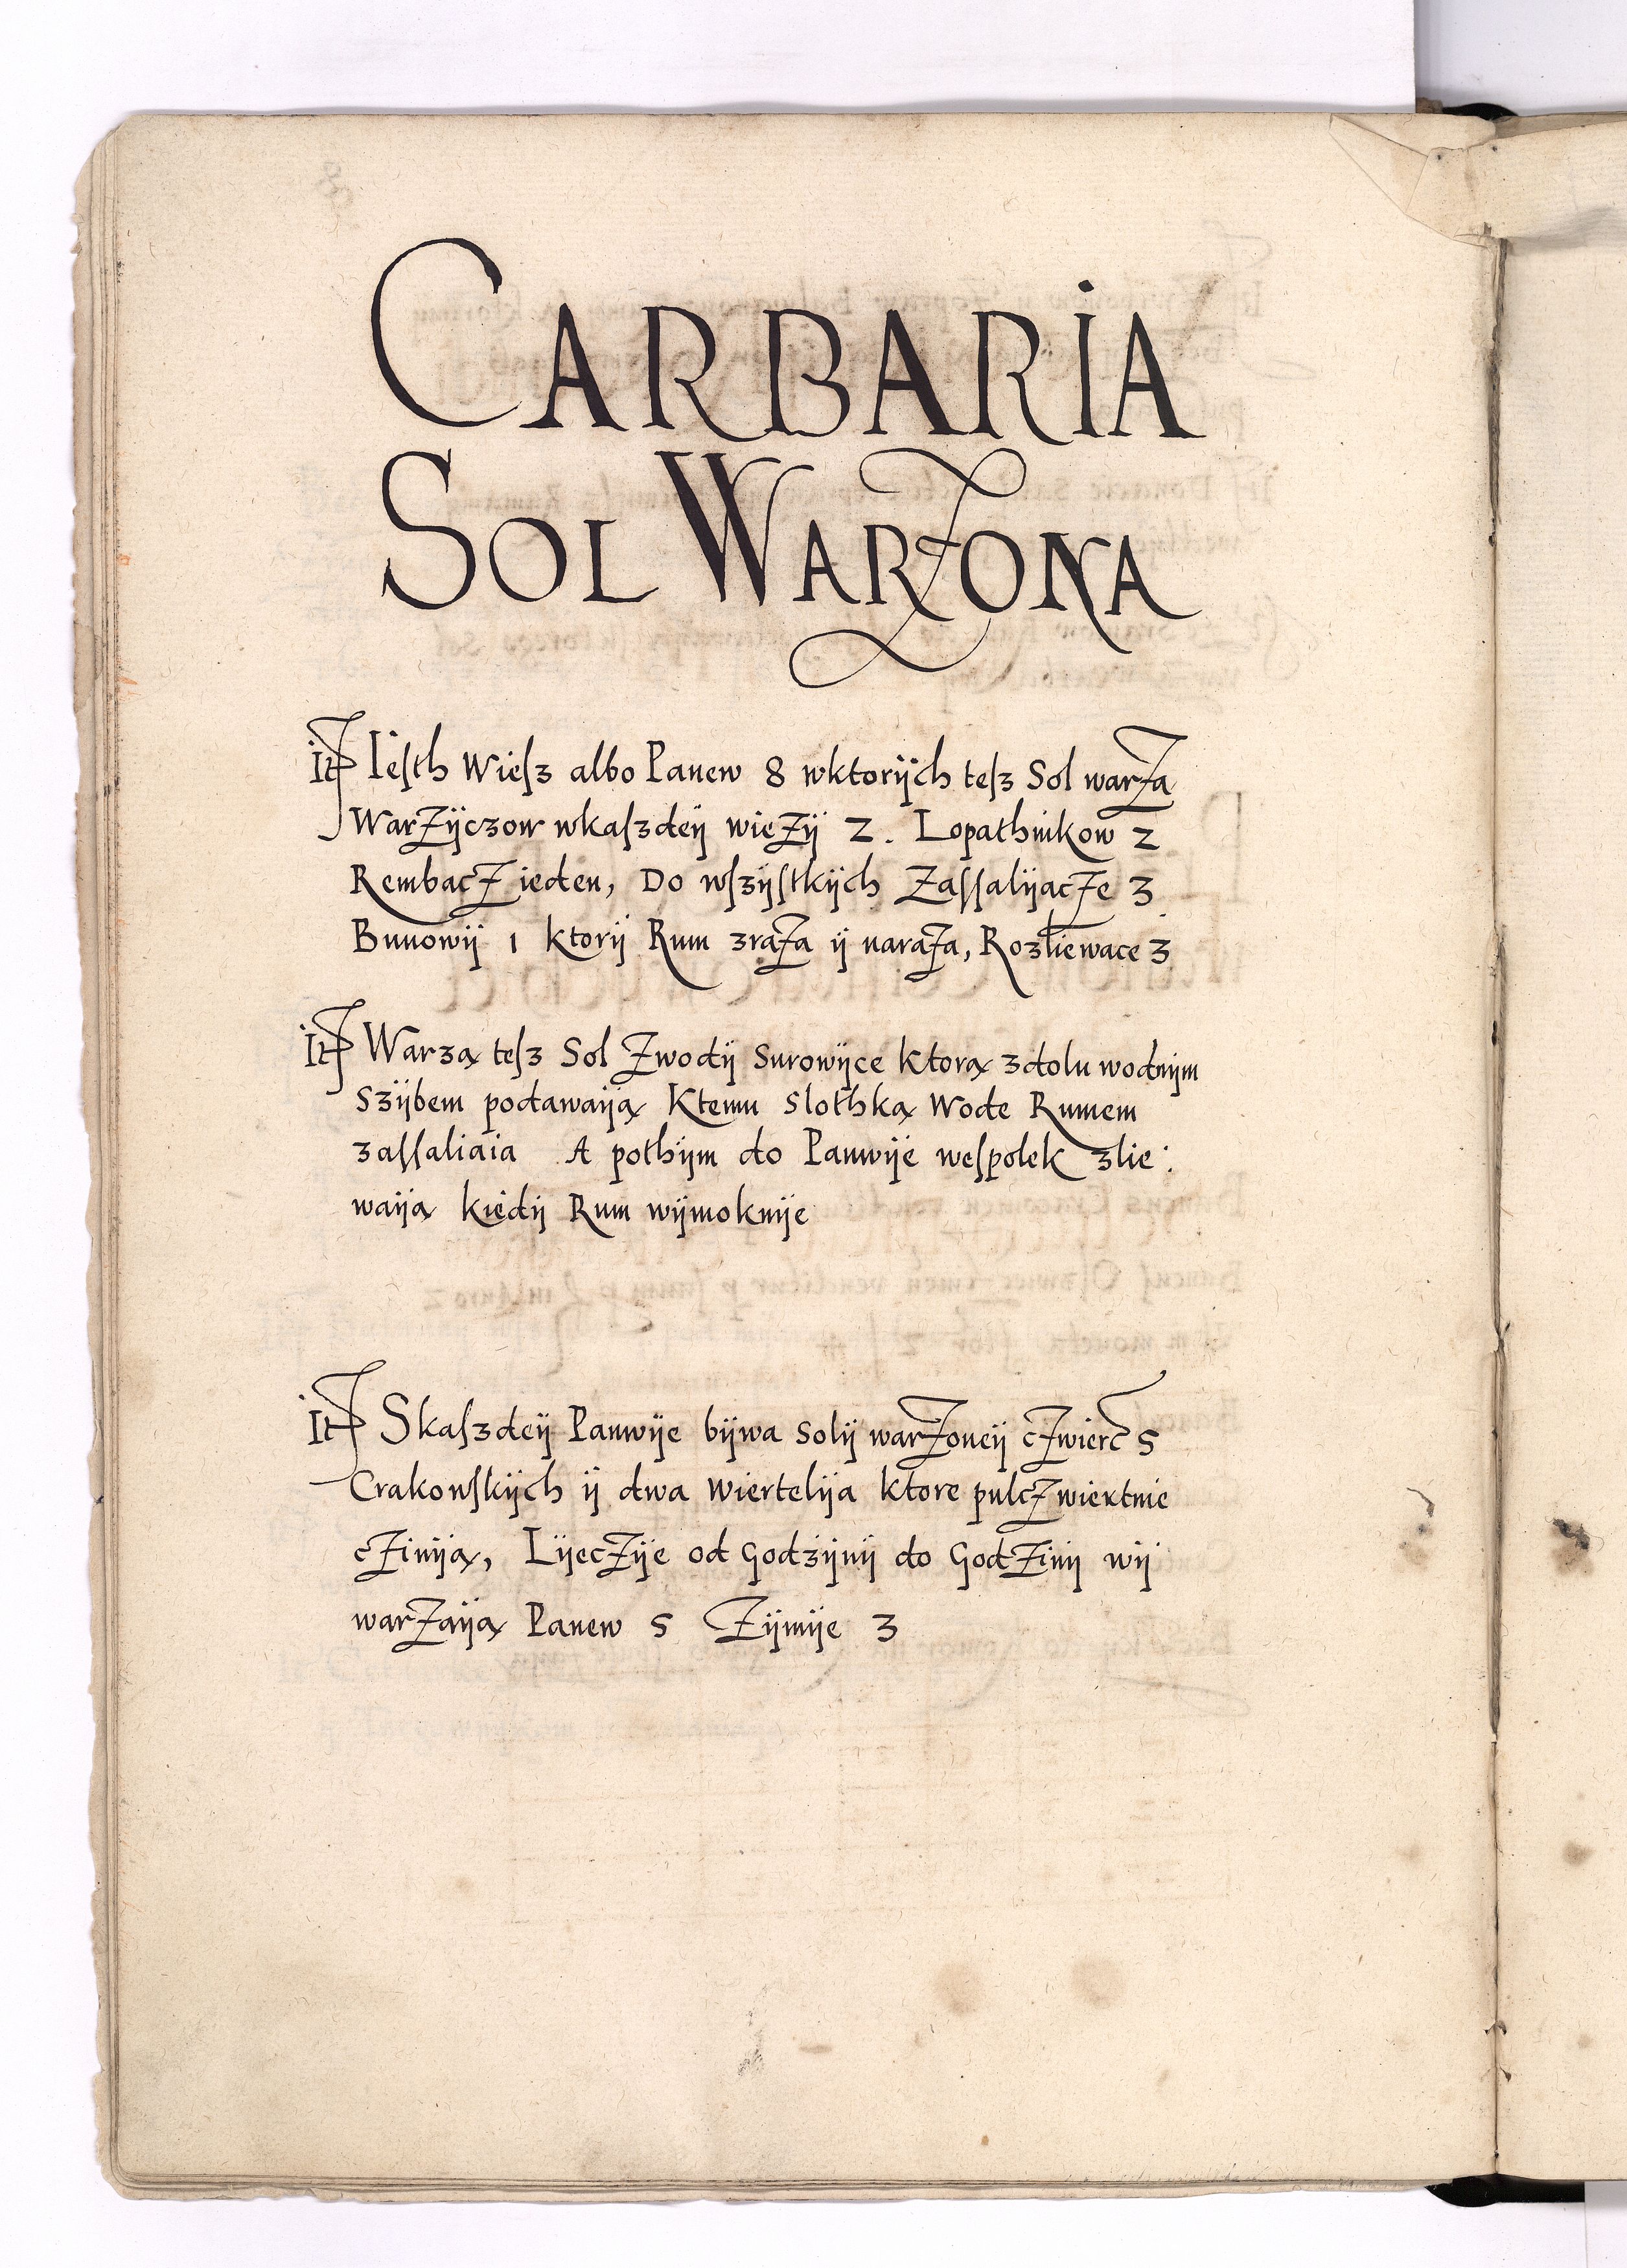 CARBARIA
SOL WARZONA
It Iesth Wiesz albo Panew 8 wktorÿch tesz Sol warZa
WarZÿczow wkaszdeÿ wieZÿ 2. Lopathnikow 2
RembacZ ieden, Do wszÿstkÿch ZassalÿacZe 3
Bunowÿ 1 ktorÿ Rum zraZa ÿ naraZa, Rozliewace 3
It Warzą tesz Sol Zwodÿ Surowÿce ktorą zdolu wodnÿm
Szÿbem podawaÿą Ktemu Slothką Wode Rumem
zassaliaia A pothÿm do Panwÿe wespolek zlie:
waÿą kiedÿ Rum wÿmoknÿe
It Skaszdeÿ Panwÿe bÿwa Solÿ warZoneÿ cZwierc 5
Crakowskÿch ÿ dwa Wiertelÿa ktore pulcZwiertnie
cZinÿą, LÿecZÿe od Godzÿnÿ do GodZinÿ wÿ
warZaÿą Panew 5 Zÿmÿe 3